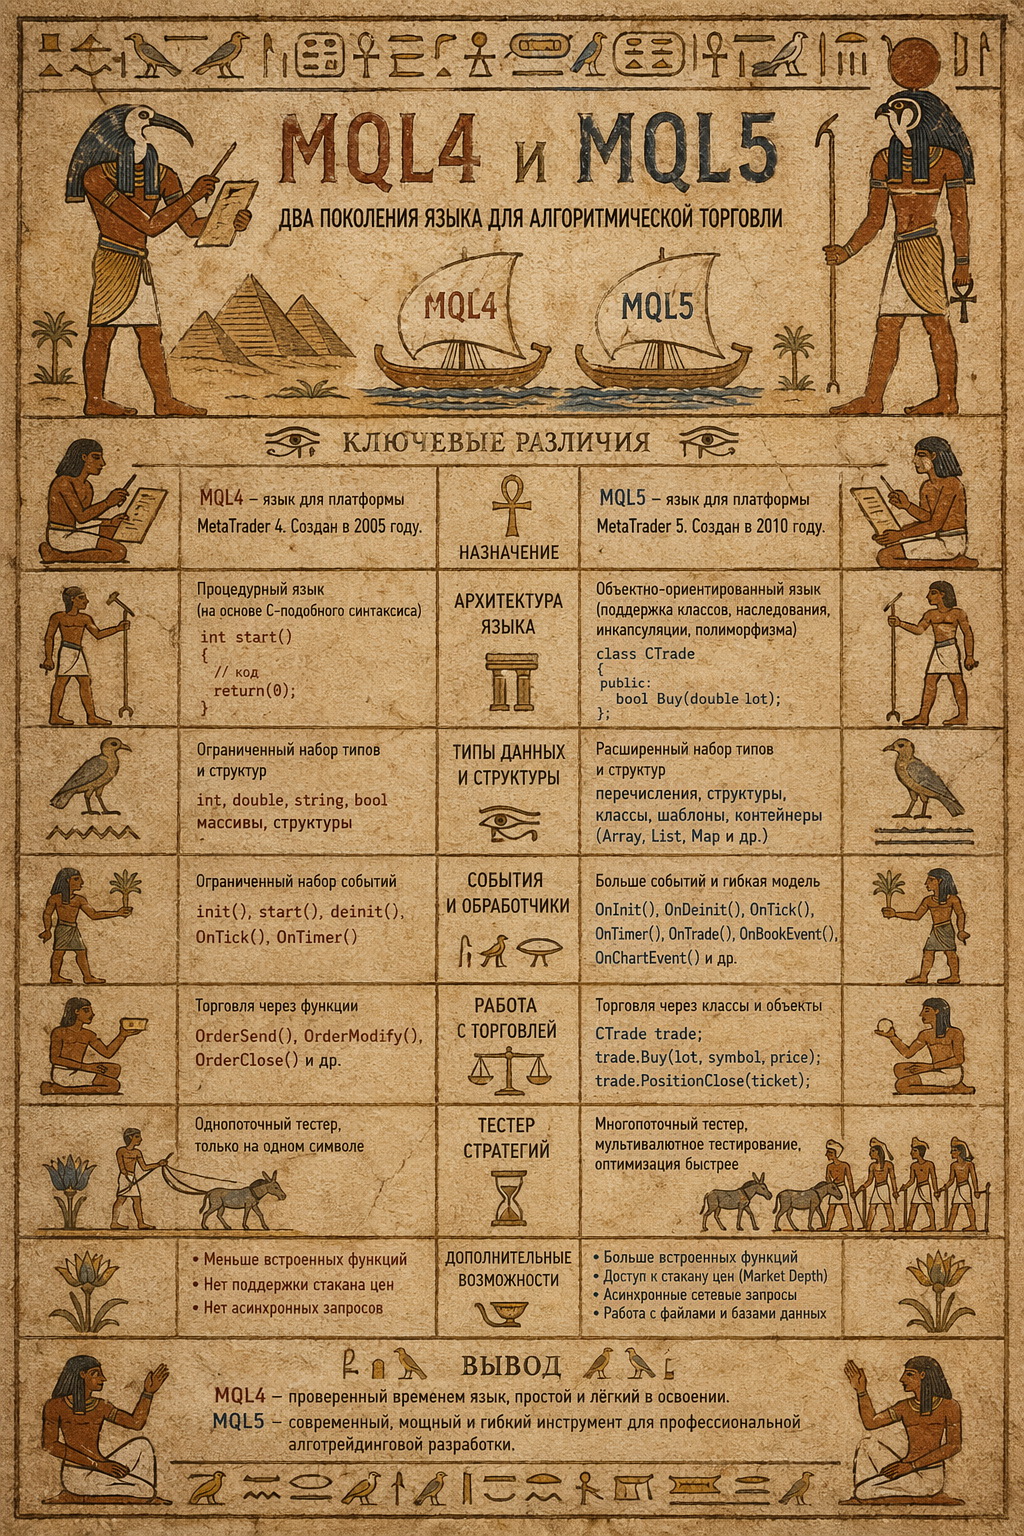 MQL4 и MQL5
ДВА ПОКОЛЕНИЯ ЯЗЫКА ДЛЯ АЛГОРИТМИЧЕСКОЙ ТОРГОВЛИ
MQL4
MQL5
КЛЮЧЕВЫЕ РАЗЛИЧИЯ
MQL4 – язык для платформы
MetaTrader 4. Создан в 2005 году.
НАЗНАЧЕНИЕ
MQL5 – язык для платформы
MetaTrader 5. Создан в 2010 году.
Процедурный язык
(на основе C-подобного синтаксиса)
int start()
{
// код
return(0);
}
АРХИТЕКТУРА
ЯЗЫКА
Объектно-ориентированный язык
(поддержка классов, наследования,
инкапсуляции, полиморфизма)
class CTrade
{
public:
bool Buy(double lot);
};
Ограниченный набор типов
и структур
int, double, string, bool
массивы, структуры
ТИПЫ ДАННЫХ
И СТРУКТУРЫ
Расширенный набор типов
и структур
перечисления, структуры,
классы, шаблоны, контейнеры
(Array, List, Map и др.)
Ограниченный набор событий
init(), start(), deinit(),
OnTick(), OnTimer()
СОБЫТИЯ
И ОБРАБОТЧИКИ
Больше событий и гибкая модель
OnInit(), OnDeinit(), OnTick(),
OnTimer(), OnTrade(), OnBookEvent(),
OnChartEvent() и др.
Торговля через функции
OrderSend(), OrderModify(),
OrderClose() и др.
РАБОТА
С ТОРГОВЛЕЙ
Торговля через классы и объекты
CTrade trade;
trade.Buy(lot, symbol, price);
trade.PositionClose(ticket);
Однопоточный тестер,
только на одном символе
ТЕСТЕР
СТРАТЕГИЙ
Многопоточный тестер,
мультивалютное тестирование,
оптимизация быстрее
• Меньше встроенных функций
• Нет поддержки стакана цен
• Нет асинхронных запросов
ДОПОЛНИТЕЛЬНЫЕ
ВОЗМОЖНОСТИ
• Больше встроенных функций
• Доступ к стакану цен (Market Depth)
• Асинхронные сетевые запросы
• Работа с файлами и базами данных
ВЫВОД
MQL4 – проверенный временем язык, простой и лёгкий в освоении.
MQL5 – современный, мощный и гибкий инструмент для профессиональной
алготрейдинговой разработки.